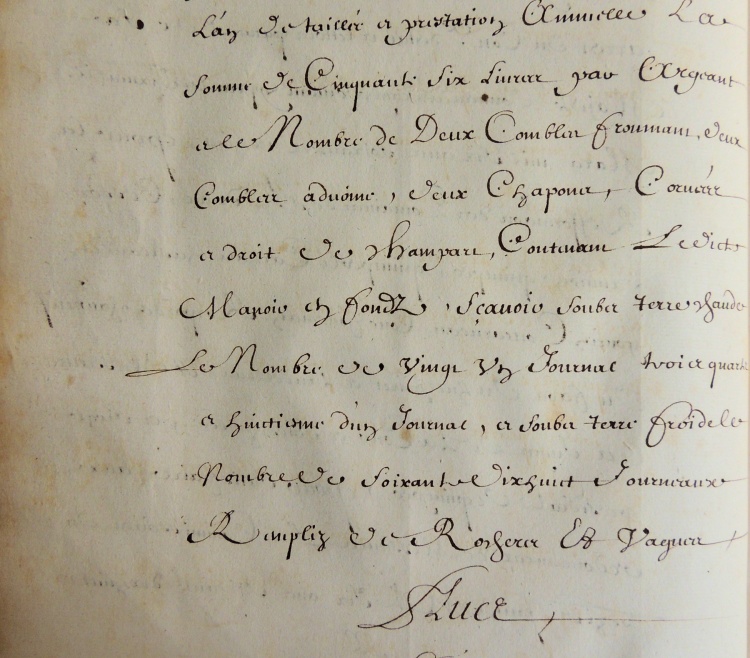 L'an de taillée et prestation Annuelle La
somme de Cinquante six Livres par Argeant
et le Nombre de Deux Combles froumant, deux
Combles advoine, deux Chapons, Corvées
et droit de champart, Contenant Ledict
Manoir en fondz, sçavoir soubz terre chaude
Le Nombre de vingt Un Journal trois quartz
et huictieme d'un Journal, et soubz terre froide le
Nombre de soixante dix huict Journeaux
Rempliz de Rochers Et Vagues